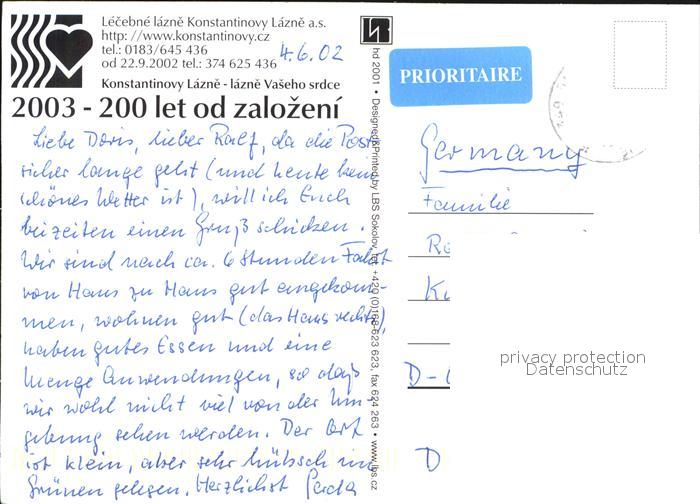 Léčebné lázně Konstantinovy Lázně a.s.
http: //www.konstantinovy.cz
tel.: 0183/645 436
od 22.9.2002 tel.: 374 625 436
4.6.02
Konstantinovy Lázně - lázně Vašeho srdce
2003 - 200 let od založení
Liebe Doris, lieber Ralf, da die Post
sicher lange geht (und heute kein
schönes Wetter ist), will ich Euch
beizeiten einen Gruß schicken.
Wir sind nach ca. 6 Stunden Fahrt
von Haus zu Haus gut angekom-
men, wohnen gut (das Haus rechts),
haben gutes Essen und eine
Menge Anwendungen, so daß
wir wohl nicht viel von der Um-
gebung sehen werden. Der Ort
ist klein, aber sehr hübsch im
Grünen gelegen. Herzlichst Gerda
hd 2001 • Designed&Printed by LBS Sokolov, tel. +420 (0)168-623 623, fax 624 263 • www.lbs.cz
PRIORITAIRE
Germany
Familie
D
privacy protection
Datenschutz